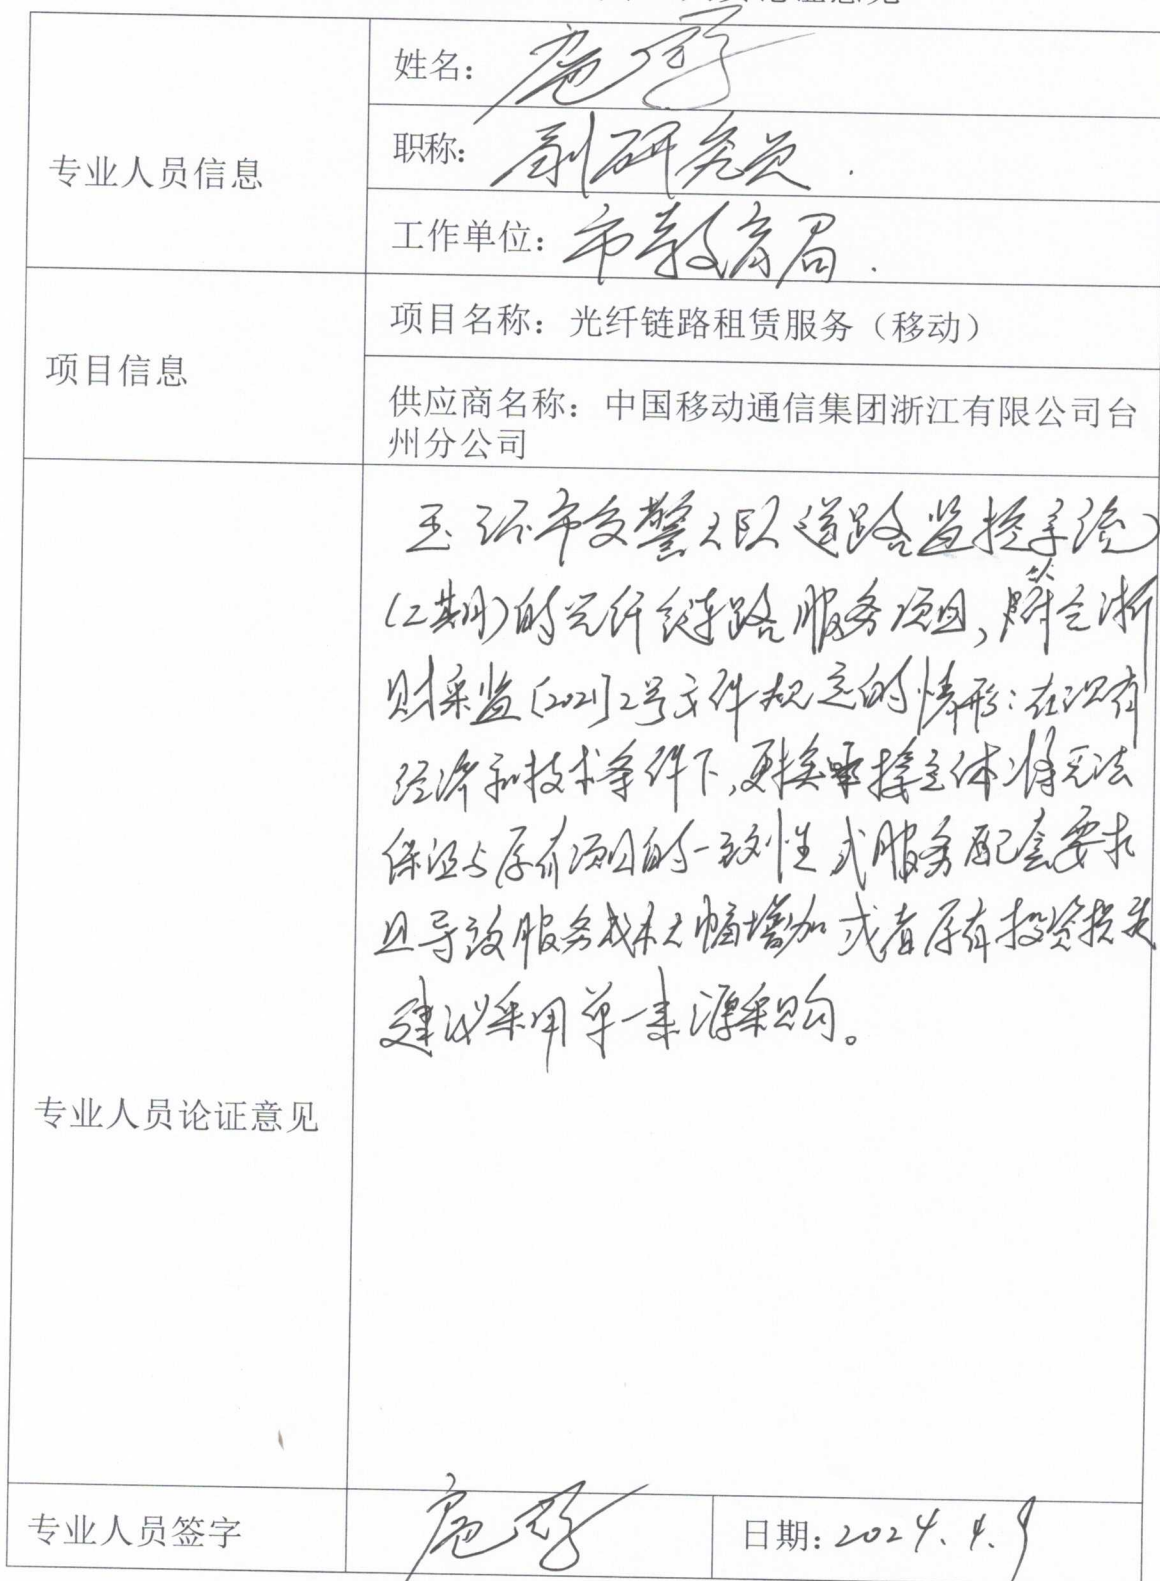 姓名：
职称：副研究员.
专业人员信息
工作单位：市教育局.
项目名称：光纤链路租赁服务（移动）
项目信息
供应商名称：中国移动通信集团浙江有限公司台
州分公司
玉环市交警大队道路监控系统
(2期)的光纤链路服务项目,符合浙
财采监[2021]2号文件规定的情形:在现有
经济和技术条件下,更换承接主体,将无法
保证与原有项目的一致性或服务配套要求
且导致服务成本大幅增加或者原有投资损失
建议采用单一来源采购。
专业人员论证意见
专业人员签字
日期:2024.4.9